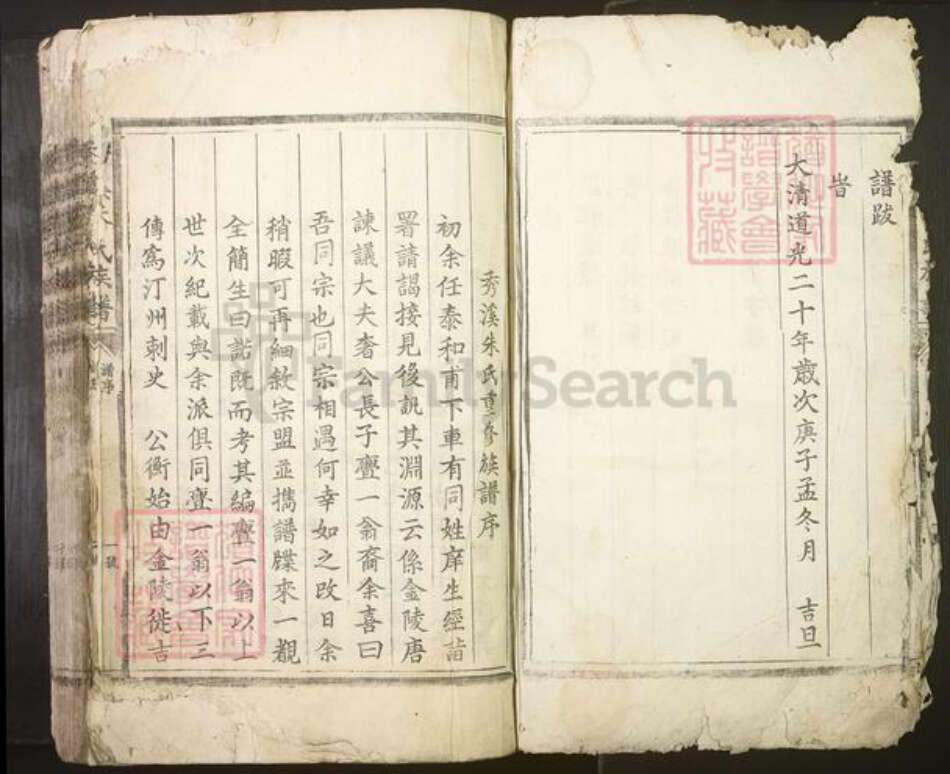 譜跋
旹
大清道光二十年歲次庚子孟冬月 吉旦
秀溪朱氏重修族譜序
初余任泰和甫下車有同姓庠生經諧
署請謁接見後訊其淵源云係金陵唐
諫議大夫奢公長子亹一翁裔余喜曰
吾同宗也同宗相遇何幸如之改日余
稍暇可再細敘宗盟並携譜牒來一覩
全簡生曰諾既而考其編亹一翁以上
世次紀載與余派俱同亹一翁以下三
傳為汀州刺史 公衡始由金陵徙吉
氏族譜
譜序
FamilySearch